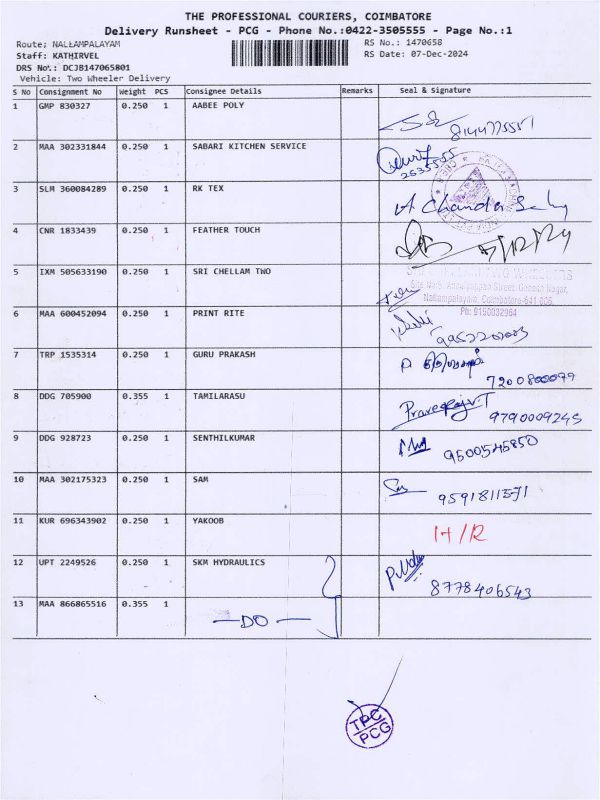 THE PROFESSIONAL COURIERS, COIMBATORE
Delivery Runsheet - PCG - Phone No.:0422-3505555 - Page No.:1
Route: NALLAMPALAYAM
RS No.: 1470658
Staff: KATHIRVEL
RS Date: 07-Dec-2024
DRS No.: DCJB147065801
Vehicle: Two Wheeler Delivery
S No Consignment No Weight PCS Consignee Details Remarks Seal & Signature
1 GMP 830327 0.250 1 AABEE POLY
8144775551
2 MAA 302331844 0.250 1 SABARI KITCHEN SERVICE
2635555
3 SLM 360084289 0.250 1 RK TEX
4 CNR 1833439 0.250 1 FEATHER TOUCH
5 IXM 505633190 0.250 1 SRI CHELLAM TWO
Nallampalayam, Coimbatore-641 006.
Ph: 9150032964
6 MAA 600452094 0.250 1 PRINT RITE
7 TRP 1535314 0.250 1 GURU PRAKASH
8 DDG 705900 0.355 1 TAMILARASU
9790009245
9 DDG 928723 0.250 1 SENTHILKUMAR
9500545850
10 MAA 302175323 0.250 1 SAM
9591811571
11 KUR 696343902 0.250 1 YAKOOB
H/R
12 UPT 2249526 0.250 1 SKM HYDRAULICS
8778406543
13 MAA 866865516 0.355 1
—DO—
TPC
PCG